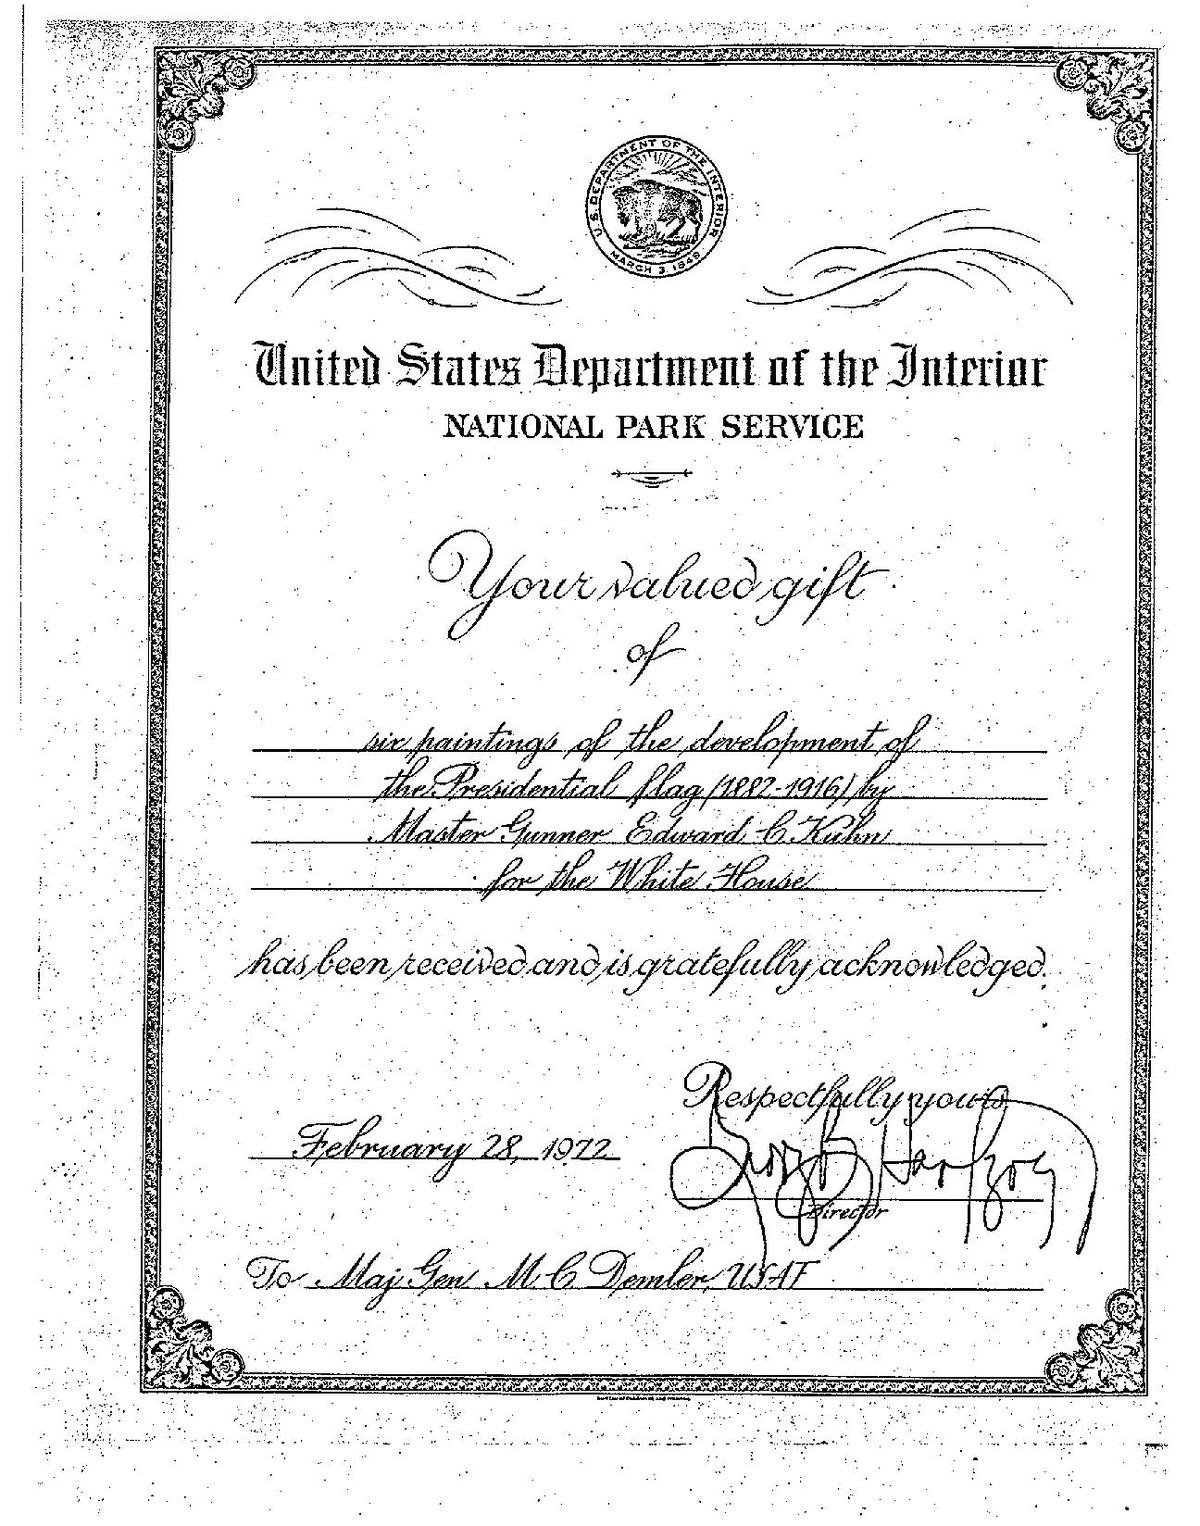 U.S. DEPARTMENT OF THE INTERIOR
MARCH 3, 1849
United States Department of the Interior
NATIONAL PARK SERVICE
Your valued gift
of
six paintings of the development of
the Presidential flag (1882-1916) by
Master Gunner Edward C Kuhn
for the White House
has been received and is gratefully acknowledged.
Respectfully yours,
February 28, 1972
George B Hartzog
Director
To Maj Gen M C Demler, USAF